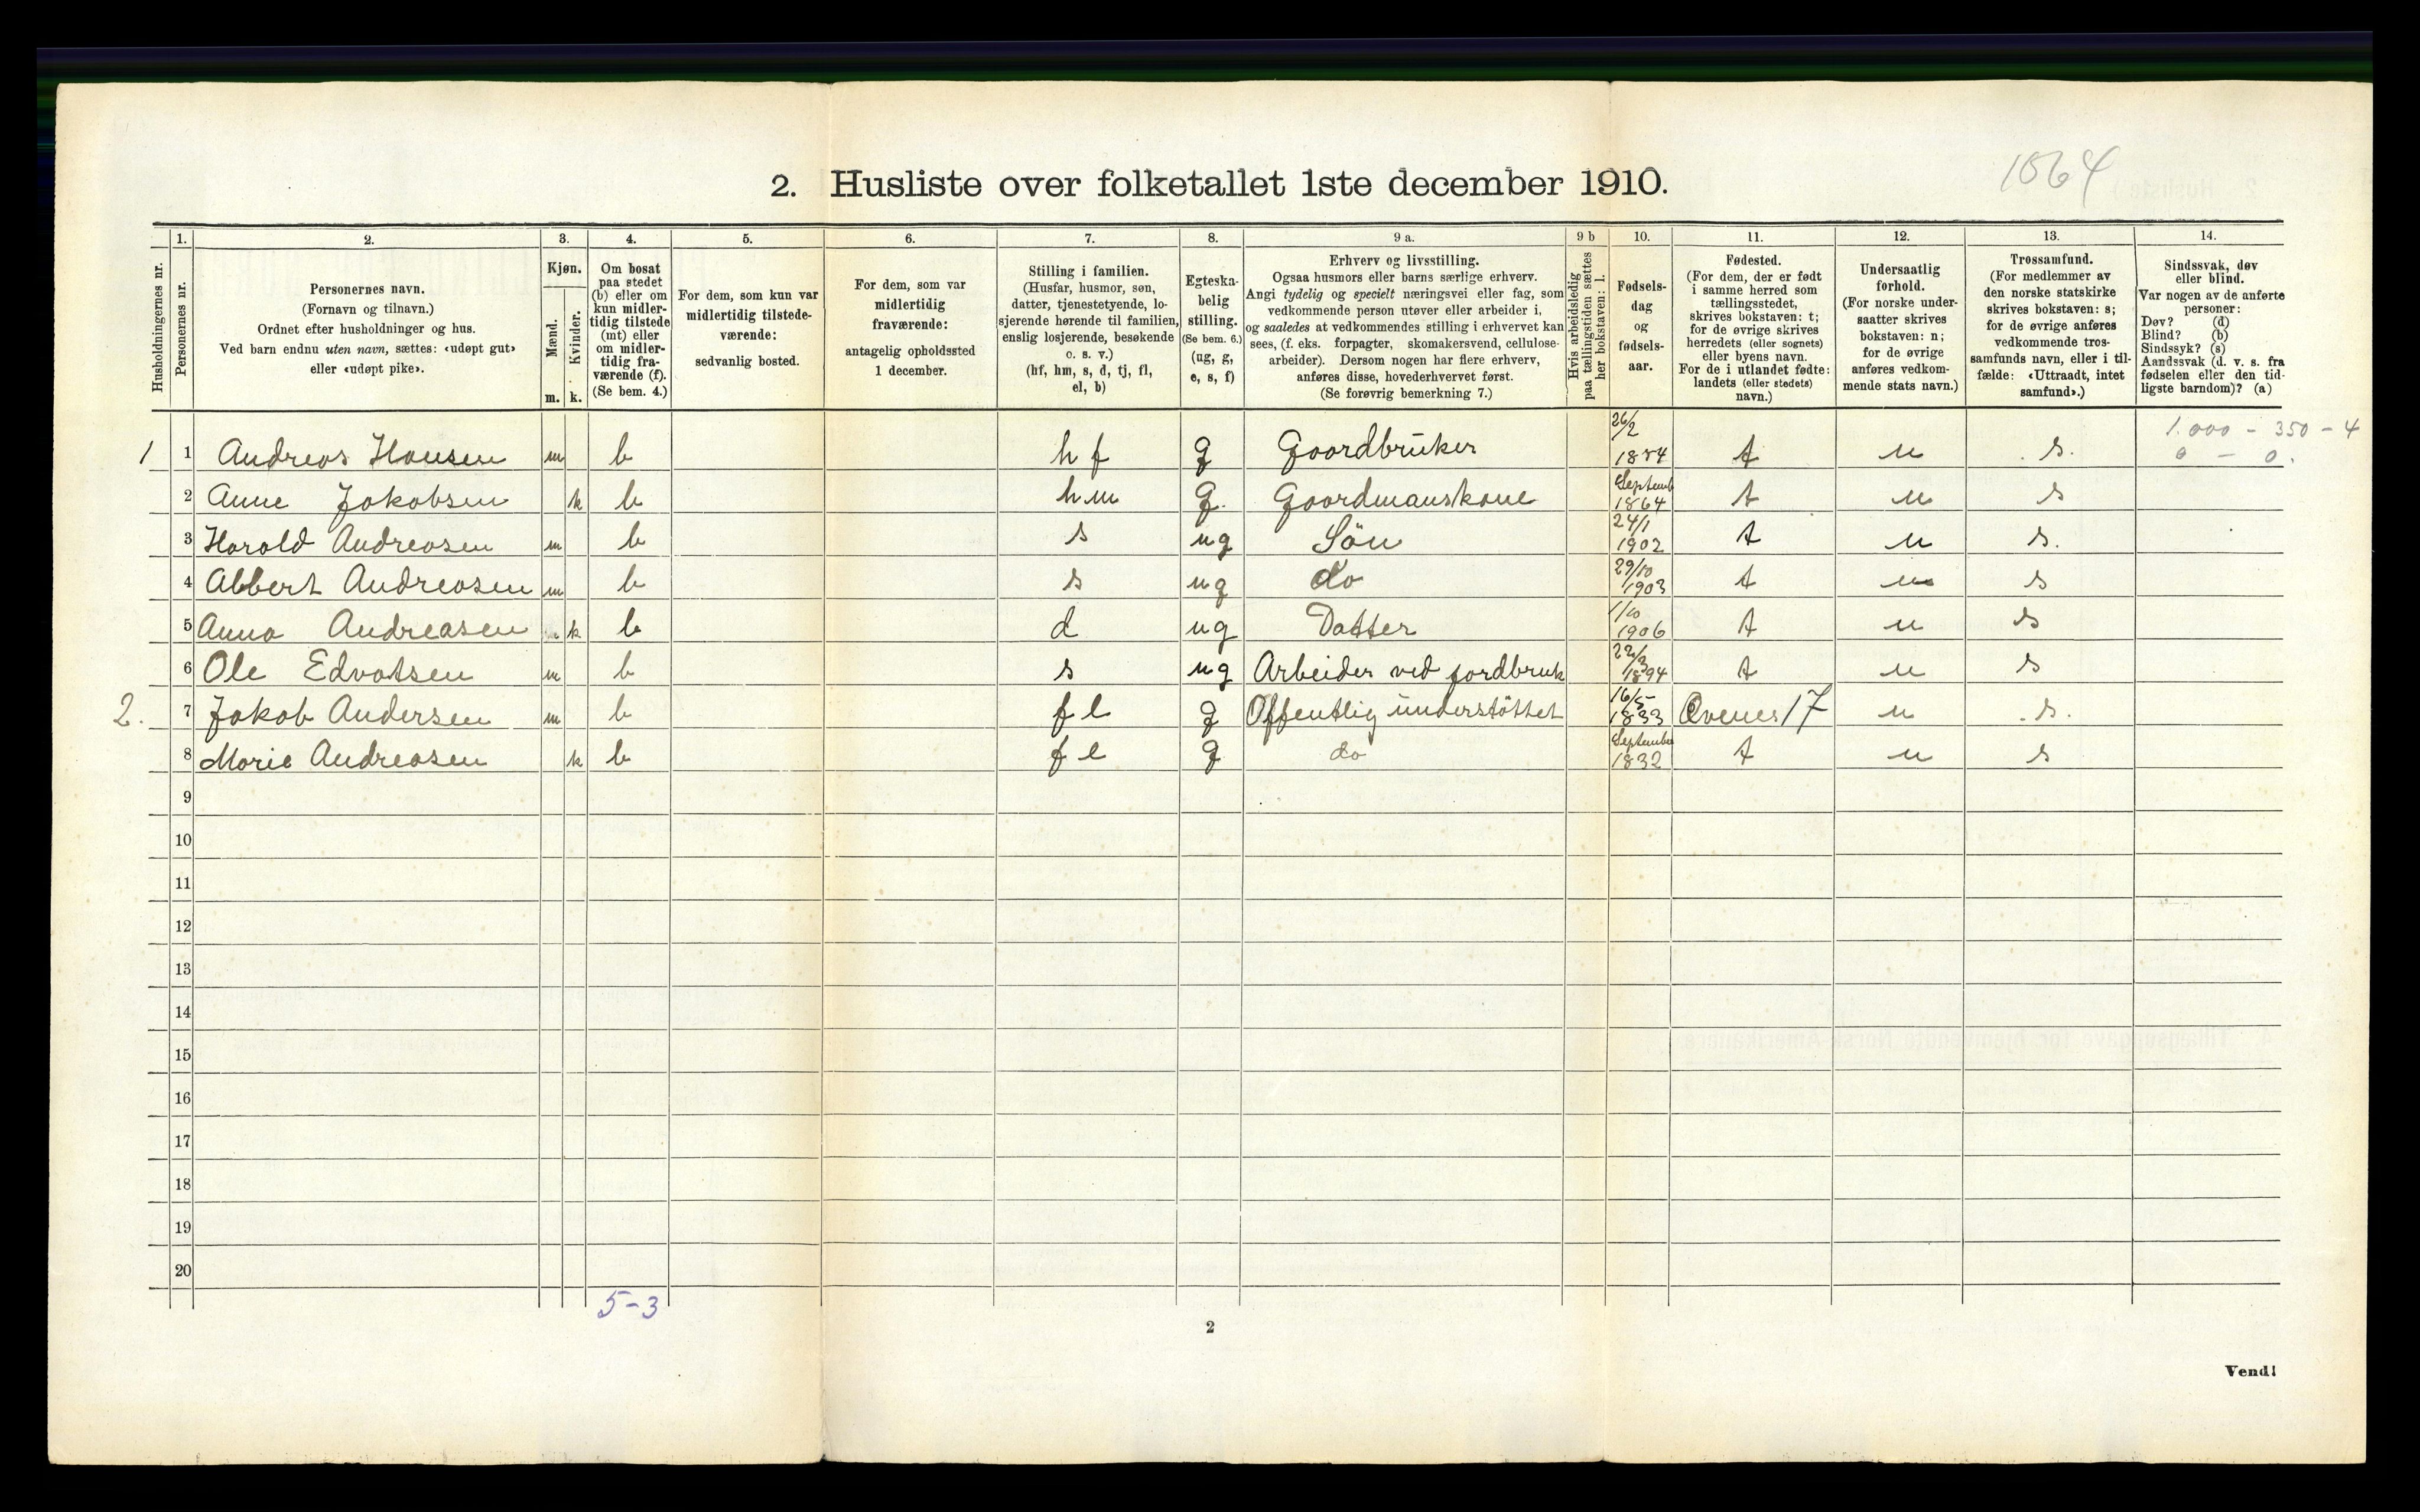 2. Husliste over folketallet 1ste december 1910.
1064
Husholdningernes nr.
1.
Personernes nr.
2.
Personernes navn.
(Fornavn og tilnavn.)
Ordnet efter husholdninger og hus.
Ved barn endnu uten navn, sættes: «udøpt gut»
eller «udøpt pike».
3.
Kjøn.
Mænd.
Kvinder.
m. k.
4.
Om bosat
paa stedet
(b) eller om
kun midler-
tidig tilstede
(mt) eller
om midler-
tidig fra-
værende (f).
(Se bem. 4.)
5.
For dem, som kun var
midlertidig tilstede-
værende:
sedvanlig bosted.
6.
For dem, som var
midlertidig
fraværende:
antagelig opholdssted
1 december.
7.
Stilling i familien.
(Husfar, husmor, søn,
datter, tjenestetyende, lo-
sjerende hørende til familien,
enslig losjerende, besøkende
o. s. v.)
(hf, hm, s, d, tj, fl,
el, b)
8.
Egteska-
belig
stilling.
(Se bem. 6.)
(ug, g,
e, s, f)
9 a.
Erhverv og livsstilling.
Ogsaa husmors eller barns særlige erhverv.
Angi tydelig og specielt næringsvei eller fag, som
vedkommende person utøver eller arbeider i,
og saaledes at vedkommendes stilling i erhvervet kan
sees, (f. eks. forpagter, skomakersvend, cellulose-
arbeider). Dersom nogen har flere erhverv,
anføres disse, hovederhvervet først.
(Se forøvrig bemerkning 7.)
9 b
Hvis arbeidsledig
paa tællingstiden sættes
her bokstaven: l.
10.
Fødsels-
dag
og
fødsels-
aar.
11.
Fødested.
(For dem, der er født
i samme herred som
tællingsstedet,
skrives bokstaven: t;
for de øvrige skrives
herredets (eller sognets)
eller byens navn.
For de i utlandet fødte:
landets (eller stedets)
navn.)
12.
Undersaatlig
forhold.
(For norske under-
saatter skrives
bokstaven: n;
for de øvrige
anføres vedkom-
mende stats navn.)
13.
Trossamfund.
(For medlemmer av
den norske statskirke
skrives bokstaven: s;
for de øvrige anføres
vedkommende tros-
samfunds navn, eller i til-
fælde: «Uttraadt, intet
samfund».)
14.
Sindssvak, døv
eller blind.
Var nogen av de anførte
personer:
Døv? (d)
Blind? (b)
Sindssyk? (s)
Aandssvak (d. v. s. fra
fødselen eller den tid-
ligste barndom)? (a)
1 1 Andreas Hansen m b hf g Gaardbruker 26/2 1854 t n s. 1.000 - 350 - 4
0 - 0.
2 Anne Jakobsen k b hm g. Gaardmanskone Septemb 1864 t n s
3 Harald Andreasen m b s ug Sön 24/1 1902 t n s.
4 Abbert Andreasen m b s ug do 29/10 1903 t n s
5 Anna Andreasen k b d ug Datter 1/10 1906 t n s
6 Ole Edvatsen m b s ug Arbeider ved jordbruk 22/3 1894 t n s
2. 7 Jakob Andersen m b fl g Offentlig understöttet 16/5 1833 Evenes 17 n s.
8 Marie Andreasen k b fl g do September 1832 t n s
9
10
11
12
13
14
15
16
17
18
19
20
5-3
2
Vend!